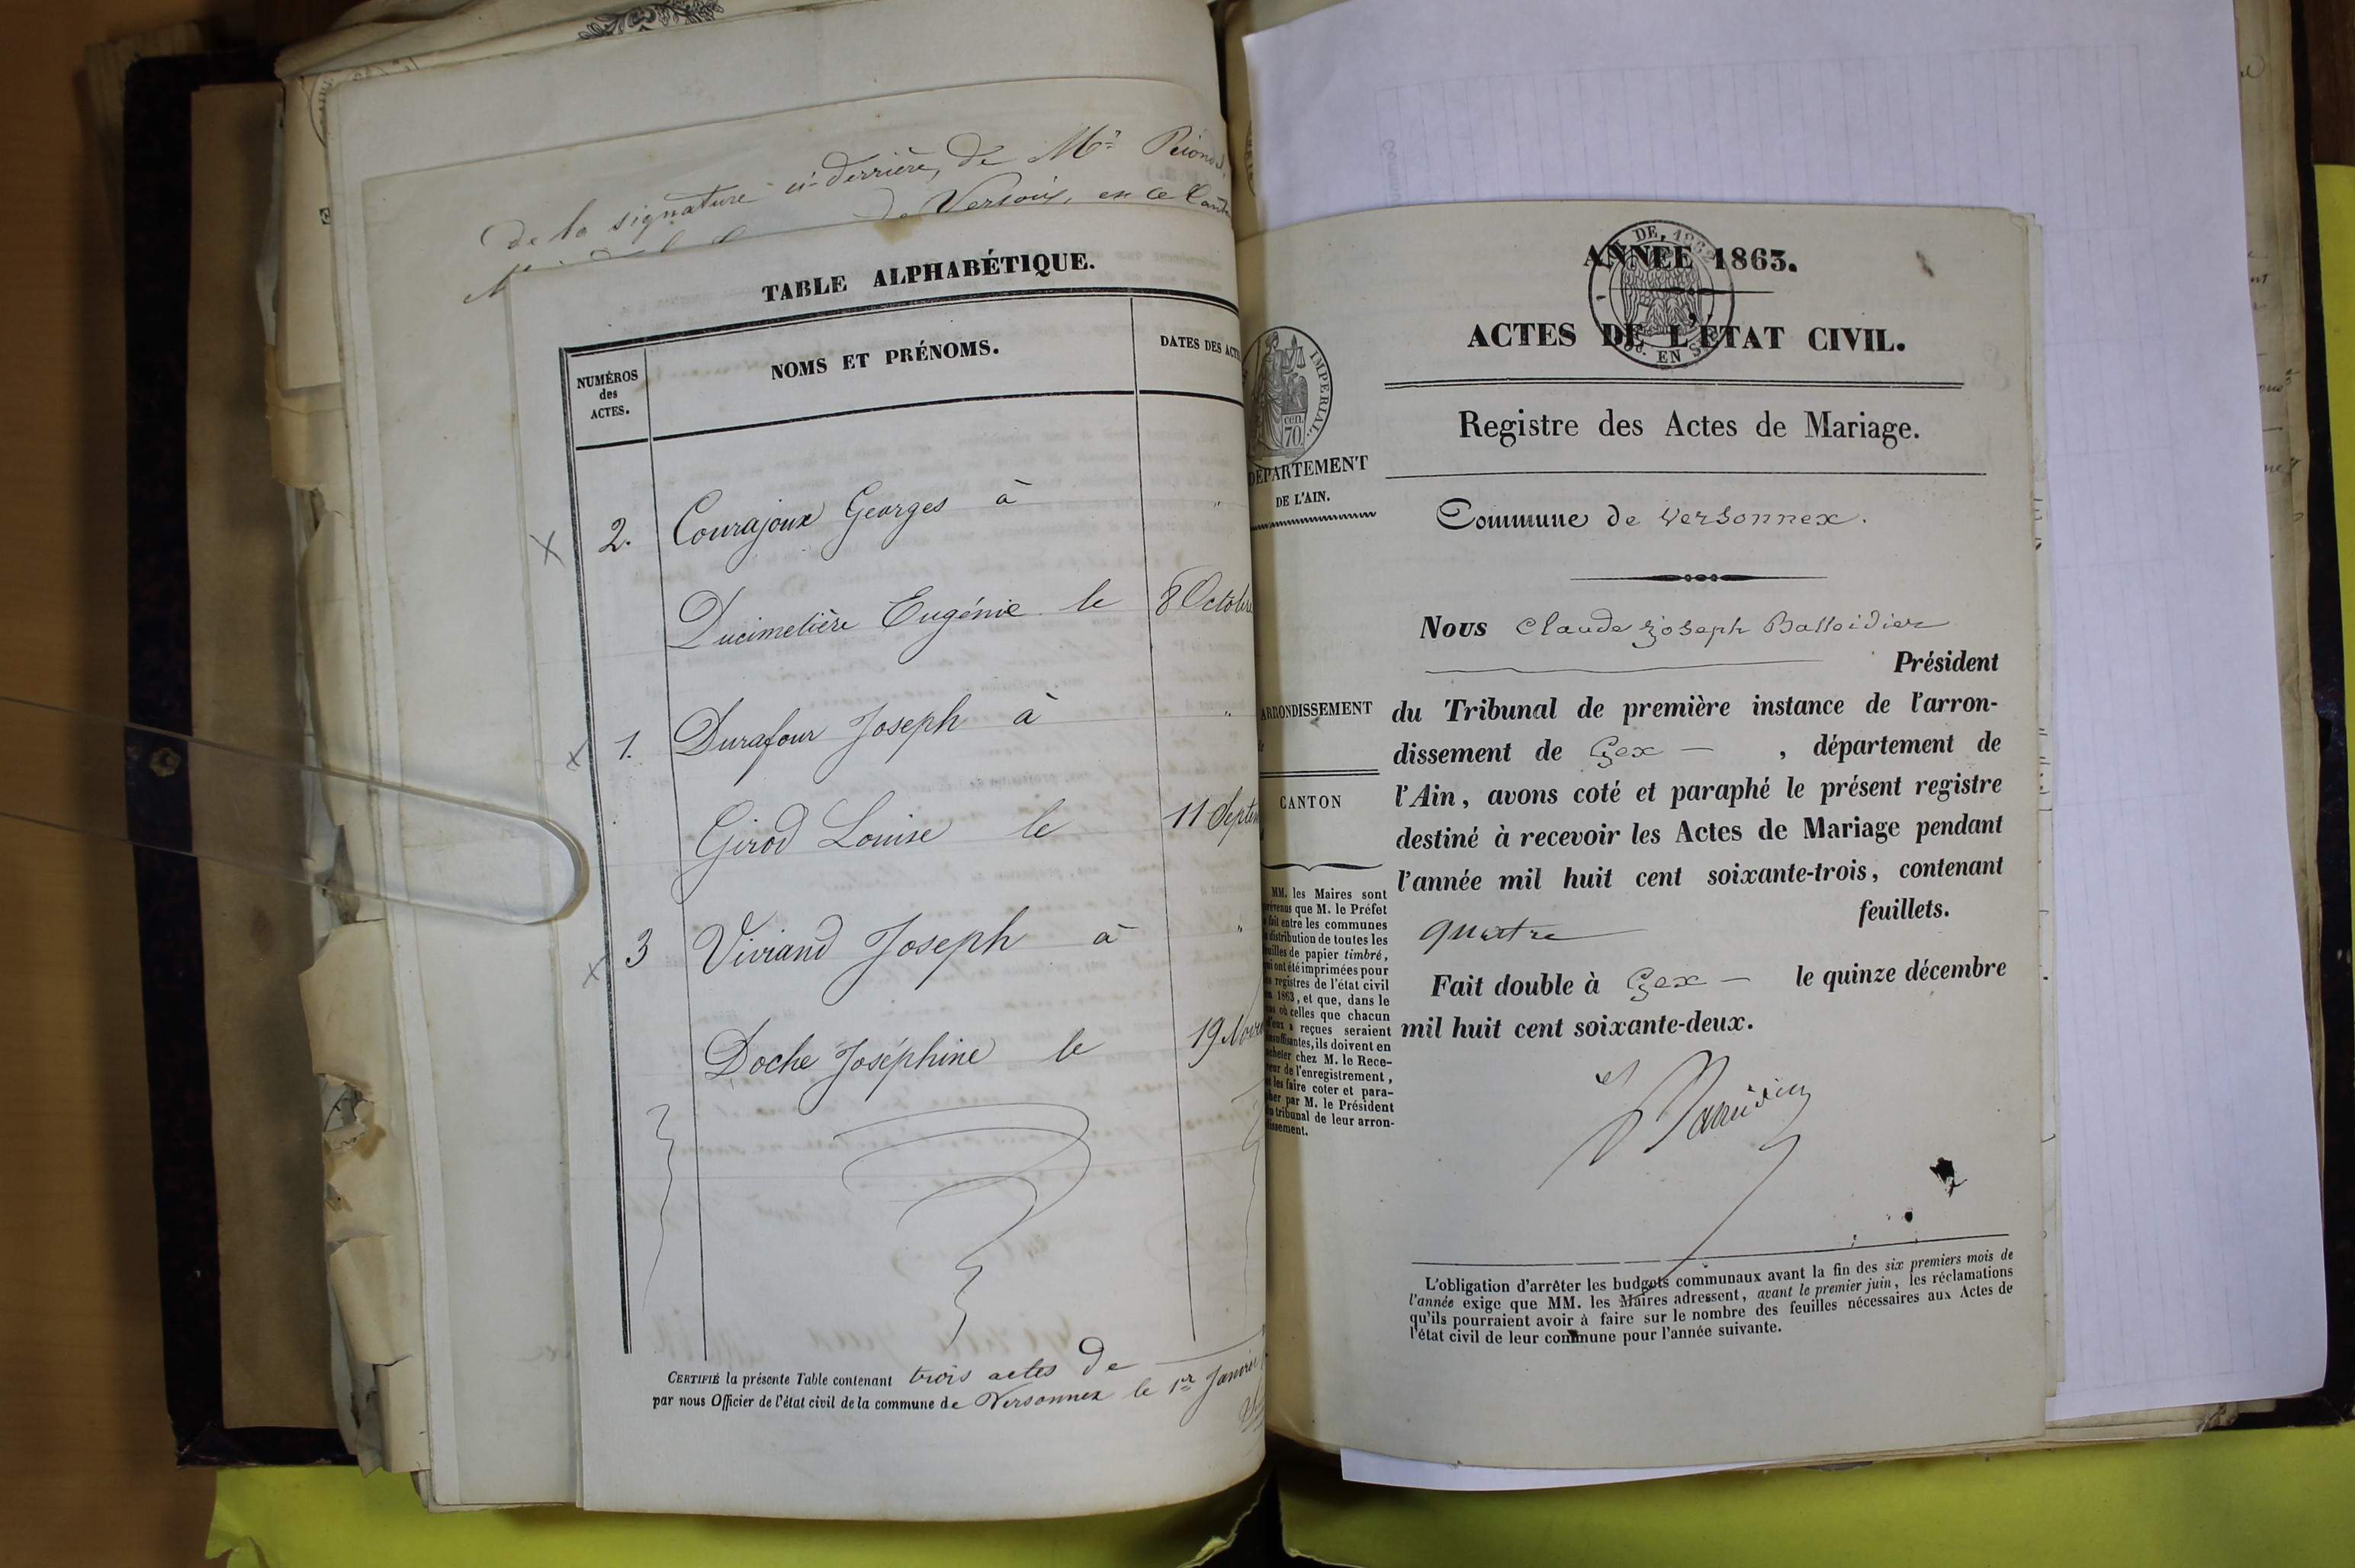 de la signature ci-derrière, de Mr
de Versoix, en ce Cant
TABLE ALPHABÉTIQUE.
NUMÉROS
des
ACTES.
NOMS ET PRÉNOMS.
DATES DES ACT
X 2. Courajoux Georges à "
Ducimetière Eugénie le 8 Octobre
X 1. Durafour Joseph à "
Girod Louise le 11 Septem
X 3 Viviand Joseph à "
Doche Joséphine le 19 Nov
CERTIFIÉ la présente Table contenant trois actes de
par nous Officier de l'état civil de la commune de Versonnex le 1er Janvier
ANNÉE 1863.
ACTES DE L'ÉTAT CIVIL.
IMPERIAL.
cen.
70
DÉPARTEMENT
DE L'AIN.
Registre des Actes de Mariage.
Commune de Versonnex.
Nous Claude Joseph Balleidier
Président
ARRONDISSEMENT
du Tribunal de première instance de l'arron-
dissement de Gex — , département de
CANTON
l'Ain, avons coté et paraphé le présent registre
destiné à recevoir les Actes de Mariage pendant
l'année mil huit cent soixante-trois, contenant
quatre feuillets.
Fait double à Gex — le quinze décembre
mil huit cent soixante-deux.
MM. les Maires sont
prévenus que M. le Préfet
a fait entre les communes
la distribution de toutes les
feuilles de papier timbré,
qui ont été imprimées pour
les registres de l'état civil
en 1863, et que, dans le
cas où celles que chacun
d'eux a reçues seraient
insuffisantes, ils doivent en
acheter chez M. le Rece-
veur de l'enregistrement,
et les faire coter et para-
pher par M. le Président
du tribunal de leur arron-
dissement.
L'obligation d'arrêter les budgets communaux avant la fin des six premiers mois de
l'année exige que MM. les Maires adressent, avant le premier juin, les réclamations
qu'ils pourraient avoir à faire sur le nombre des feuilles nécessaires aux Actes de
l'état civil de leur commune pour l'année suivante.